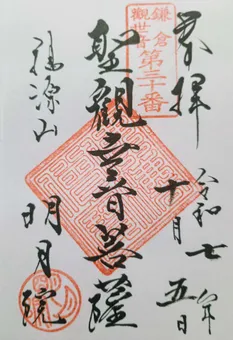 鎌倉
觀世音
第三十番
奉拝
令和七年
十月五日
聖觀世音菩薩
福源山
明月院